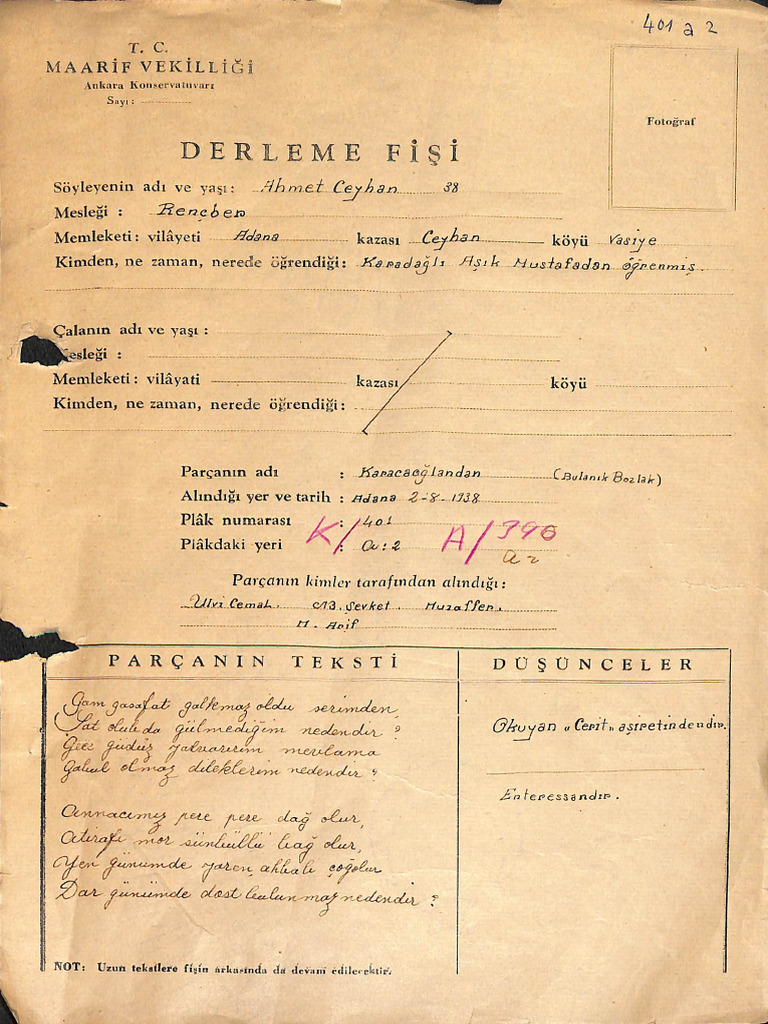 401 a 2
T. C.
MAARİF VEKİLLİĞİ
Ankara Konservatuvarı
Sayı:
Fotoğraf
DERLEME FİŞİ
Söyleyenin adı ve yaşı: Ahmet Ceyhan 38
Mesleği : Rençber
Memleketi: vilâyeti Adana kazası Ceyhan köyü Vasiye
Kimden, ne zaman, nerede öğrendiği: Karadağlı Aşık Mustafadan öğrenmiş.
Çalanın adı ve yaşı :
esleği :
Memleketi: vilâyati kazası köyü
Kimden, ne zaman, nerede öğrendiği:
Parçanın adı : Karacaoğlandan (Bulanık Bozlak)
Alındığı yer ve tarih : Adana 2-8-1938
Plâk numarası : 401
K/ A/390
Plâkdaki yeri : a:2 a2
Parçanın kimler tarafından alındığı:
Ulvi Cemal. Şevket. Muzaffer.
M. Arif
PARÇANIN TEKSTİ
Gam gasafat galkmaz oldu serimden,
Şat olub da gülmediğim nedendir?
Gece gündüz yalvarırım mevlama
Gabul olmaz dileklerim nedendir?
Annacımız pere pere dağ olur,
Atırafı mor sünbüllü bağ olur,
Yen günümde yaren, ahbab çoğolur
Dar günümde dost bulunmaz nedendir?
DÜŞÜNCELER
Okuyan "Cerit" aşiretindendir.
Enteressandır.
NOT: Uzun tekstlere fişin arkasında da devam edilecektir.